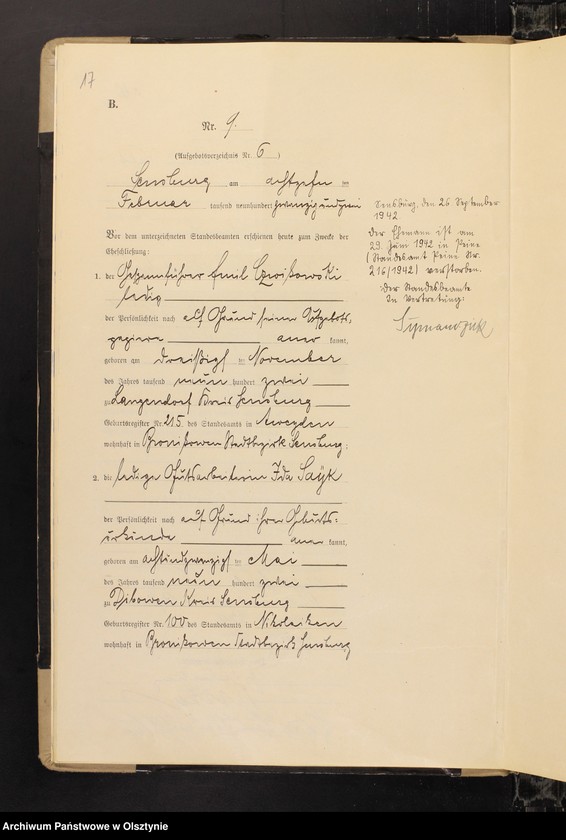 17
B.
Nr. 9.
(Aufgebotsverzeichnis Nr. 6)
Sensburg am achtzehn ten
Februar tausend neunhundert zwanzig und zwei
Vor dem unterzeichneten Standesbeamten erschienen heute zum Zwecke der
Eheschließung:
1. der Gespannführer Emil
ledig
der Persönlichkeit nach auf Grund seiner Aufgebots-
papiere aner kannt,
geboren am dreißigsten November
des Jahres tausend neun hundert zwei
zu Langendorf Kreis Sensburg
Geburtsregister Nr. 215 des Standesamts in Aweyden
wohnhaft in Bronikowen Stadtbezirk Sensburg;
2. die ledige Gutsarbeiterin Ida Sayk
der Persönlichkeit nach auf Grund ihrer Geburts-
urkunde aner kannt,
geboren am achtundzwanzigsten Mai
des Jahres tausend neun hundert zwei
zu Dibowen Kreis Sensburg
Geburtsregister Nr. 100 des Standesamts in Nikolaiken
wohnhaft in Bronikowen Stadtbezirk Sensburg
Sensburg, den 26 September
1942
Der Ehemann ist am
29. Juni 1942 in Peine
(Standesamt Peine Nr.
216/1942) verstorben.
Der Standesbeamte
In Vertretung:
Archiwum Państwowe w Olsztynie